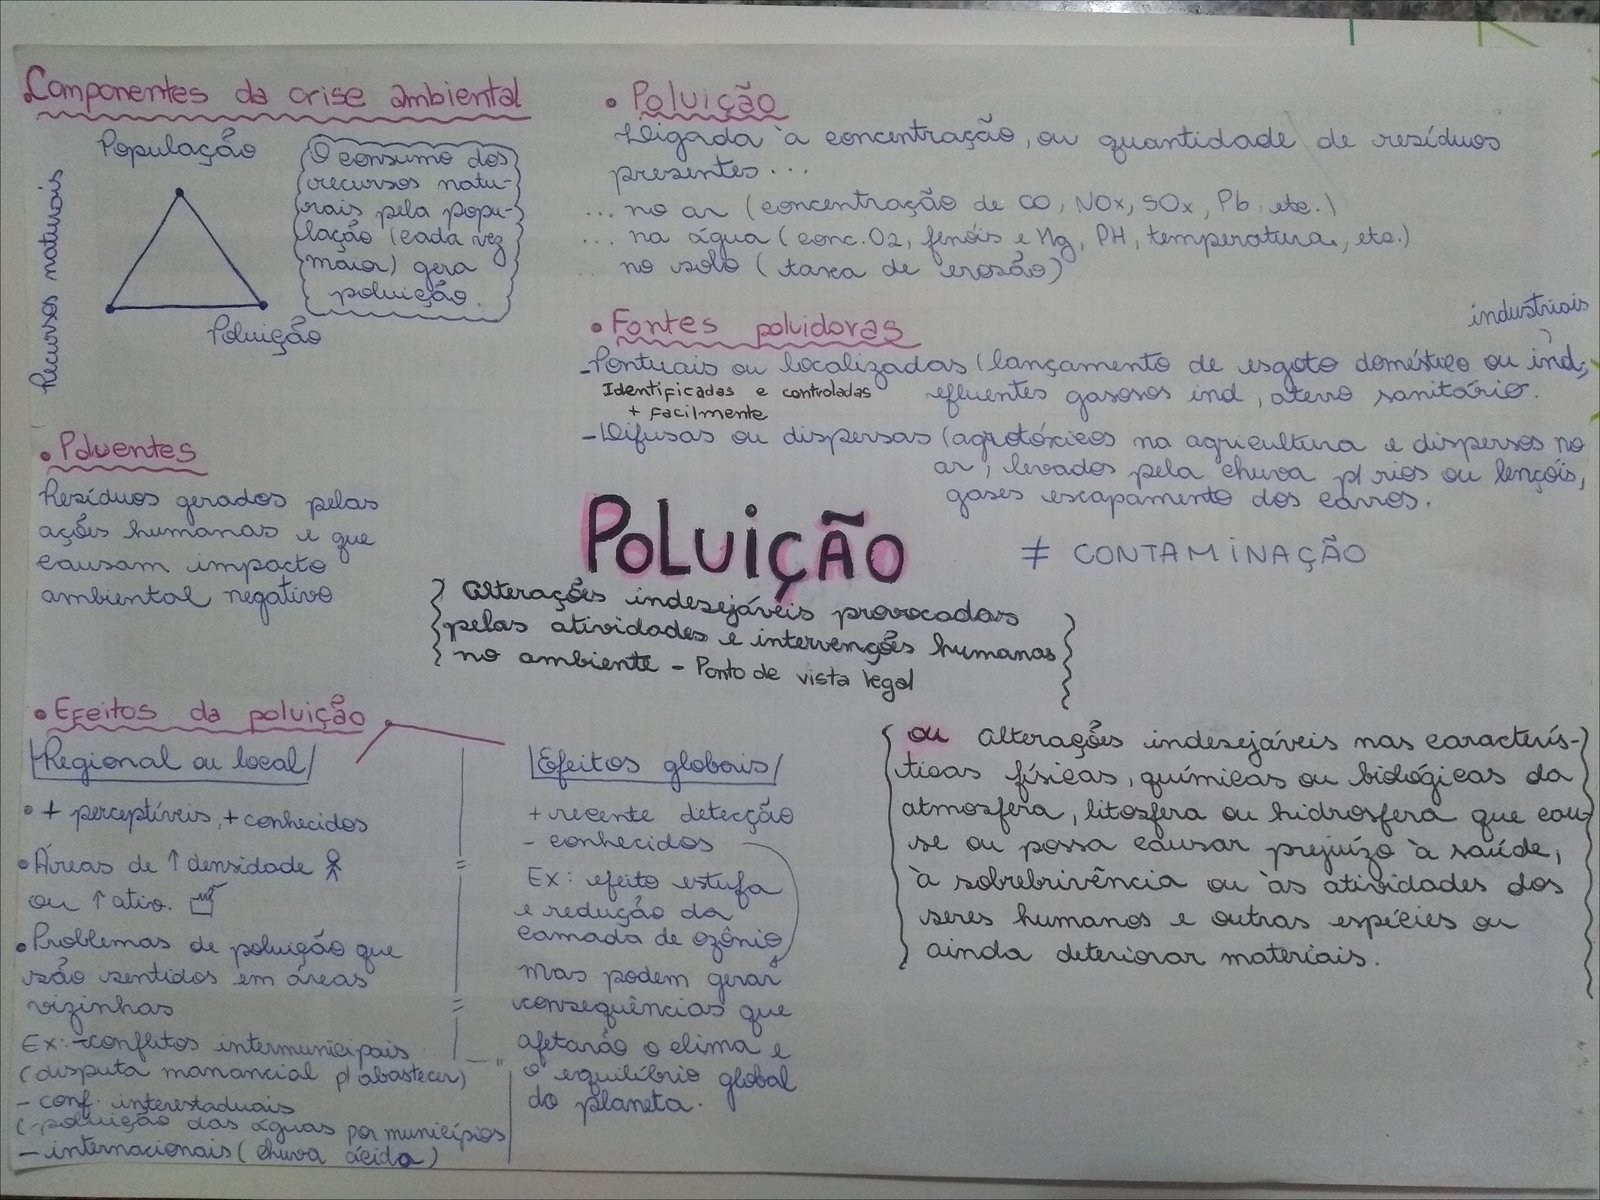 Componentes da crise ambiental
População
Recursos naturais
Poluição
O consumo dos
recursos natu-
rais pela popu-
lação (cada vez
maior) gera
poluição.
• Poluição
Ligada à concentração, ou quantidade de resíduos
presentes...
... no ar (concentração de CO, NOx, SOx, Pb, etc.)
... na água (conc. O2, fenóis e Hg, PH, temperatura, etc.)
... no solo (taxa de erosão)
• Fontes poluidoras
industriais
- Pontuais ou localizadas (lançamento de esgoto doméstico ou ind;
Identificadas e controladas
+ facilmente
efluentes gasosos ind, aterro sanitário.
- Difusas ou dispersas (agrotóxicos na agricultura e dispersos no
ar, levados pela chuva p/ rios ou lençóis,
gases escapamento dos carros.
• Poluentes
Resíduos gerados pelas
ações humanas e que
causam impacto
ambiental negativo
POLUIÇÃO
≠ CONTAMINAÇÃO
Alterações indesejáveis provocadas
pelas atividades e intervenções humanas
no ambiente - Ponto de vista legal
• Efeitos da poluição
Regional ou local
• + perceptíveis, + conhecidos
• Áreas de ↑ densidade
ou ↑ ativ.
• Problemas de poluição que
são sentidos em áreas
vizinhas
Ex: - conflitos intermunicipais
(disputa manancial p/ abastecer)
- conf. interestaduais
(poluição das águas por municípios
- internacionais (chuva ácida)
Efeitos globais
+ recente detecção
- conhecidos
Ex: efeito estufa
e redução da
camada de ozônio
mas podem gerar
consequências que
afetarão o clima e
o equilíbrio global
do planeta.
ou Alterações indesejáveis nas caracterís-
ticas físicas, químicas ou biológicas da
atmosfera, litosfera ou hidrosfera que cau-
se ou possa causar prejuízo à saúde,
à sobrebrivência ou às atividades dos
seres humanos e outras espécies ou
ainda deteriorar materiais.